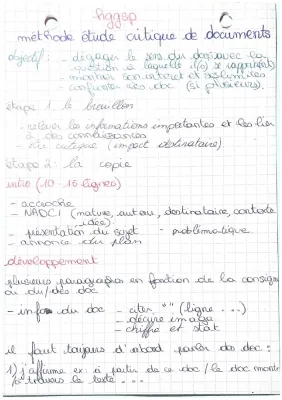 hggsp
méthode étude critique de documents
objectif : - dégager le sens du doc avec la
question à laquelle il(s) se rapporte(nt)
- montrer son intérêt et ses limites
- confronter les doc (si plusieurs)
étape 1 : le brouillon
- relever les informations importantes et les lier
à des connaissances
- critique (impact destinataire)
étape 2 : la copie
intro (10 - 15 lignes)
- accroche
- NADCI (nature, auteur, destinataire, contexte
idée)
- présentation du sujet - problématique
- annonce du plan
développement
plusieurs paragraphes en fonction de la consigne
ou du/des doc
- infos du doc - citer " " (ligne ...)
- décrire image
- chiffre et stat
il faut toujours d'abord parler du doc :
1) j'affirme ex : à partir de ce doc / le doc montre
/ à travers le texte ...